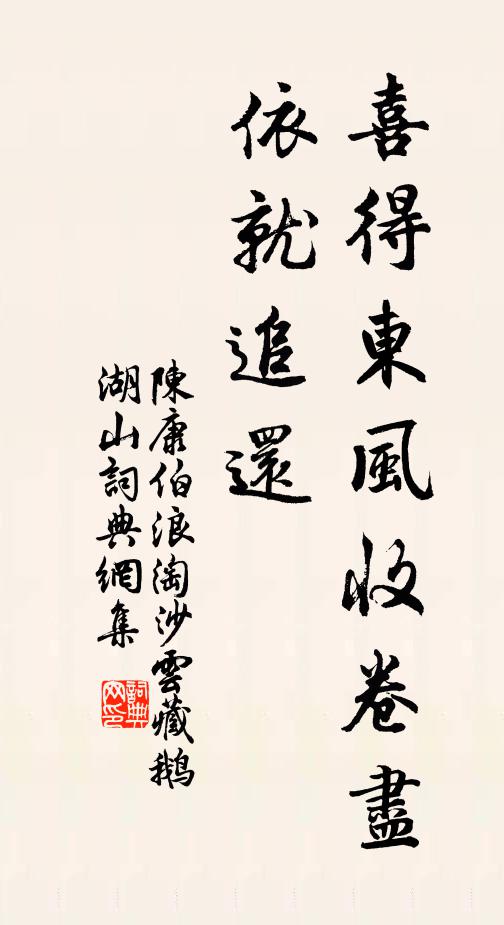 喜得東風收卷盡
依就追還
陳康伯浪淘沙雲藏鵝
湖山詞典網集
詞典
网印